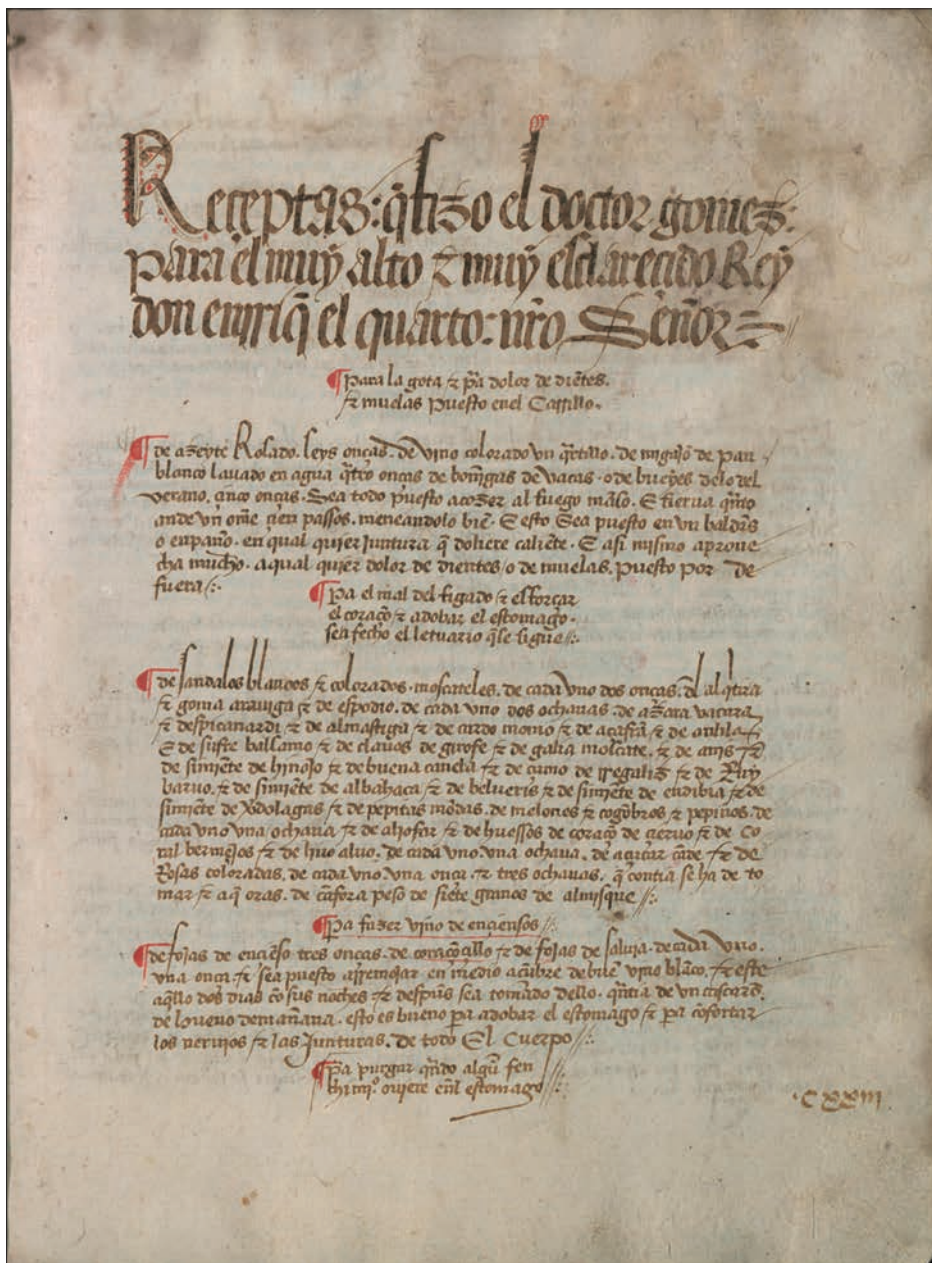 Receptas: q̃ fizo el doctor gomez:
para el muy alto ⁊ muy esclarecido Rey
don enrriq̃ el quarto: nr̃o Señor
¶ Para la gota ⁊ pã dolor de dientes.
⁊ muelas puesto enel Carrillo.
¶ de azeyte Rosado. seys onças. de vino colorado vn q̃rtillo. de migajõ de pan
blanco lauado en agua q̃tro onças de boñigas de vacas. o de bueyes delo del
verano. çinco onças. Sea todo puesto acozer al fuego mãso. E fierua q̃nto
ande vn om̃e çien passos. meneandolo biẽ. E esto Sea puesto en vn baldres
o enpaño. en qual quier Juntura q̃ doliere caliẽte. E asi mismo aproue
cha mucho. aqual quier dolor de dientes / o de muelas. puesto por de
fuera /:.
¶ Pa el mal del figado ⁊ esforçar
el coraçõ ⁊ adobar el estomago.
sea fecho el letuario q̃se sigue /:.
¶ de sandalos blancos ⁊ colorados. moscateles. de cada vno dos onças. del alq̃tira
⁊ goma arauiga ⁊ de espodio. de cada vno dos ochauas. de
⁊ despicanardi ⁊ de almastiga ⁊ de cardo momo ⁊ de açafrã ⁊ de
E de ballamo ⁊ de clauos de girofe ⁊ de galia moscate. ⁊ de anis ⁊
de simiẽte de hinojo ⁊ de buena canela ⁊ de çumo de rregaliz ⁊ de Ruy
baruo. ⁊ de simiẽte de albahaca ⁊ de ⁊ de simiẽte de endibia ⁊ de
simiẽte de verdolagas ⁊ de pepitas mõdas. de melones ⁊ cogõbros ⁊ pepinos. de
cada vno vna ochaua ⁊ de aljofar ⁊ de huessos de coraçõ de çieruo ⁊ de Co
ral bermejos ⁊ de aluo. de cada vno. vna ochaua. de açucar cãde ⁊ de
Rosas coloradas. de cada vno vna onça ⁊ tres ochauas. q̃ contia se ha de to
mar ⁊ a q̃ oras. de cãfora peso de siete granos de almisque //:.
¶ Pa fazer vino de ençiensos //:.
¶ de fojas de ençiẽso tres onças. de coraçõçillo ⁊ de fojas de saluia. de cada vno.
vna onça. ⁊ sea puesto arremojar en medio açũbre de vino blãco. ⁊ este
aq̃llo dos dias cõ sus noches ⁊ despues sea tomado dello. q̃ntia de vn
de bueno demañana. esto es bueno pa adobar el estomago ⁊ pa cõfortar
los neruios ⁊ las Junturas. de todo El Cuerpo //:.
¶ Pa purgar q̃ndo algũ fen
chimi.º ouiere enl estomago //
.C xxiii